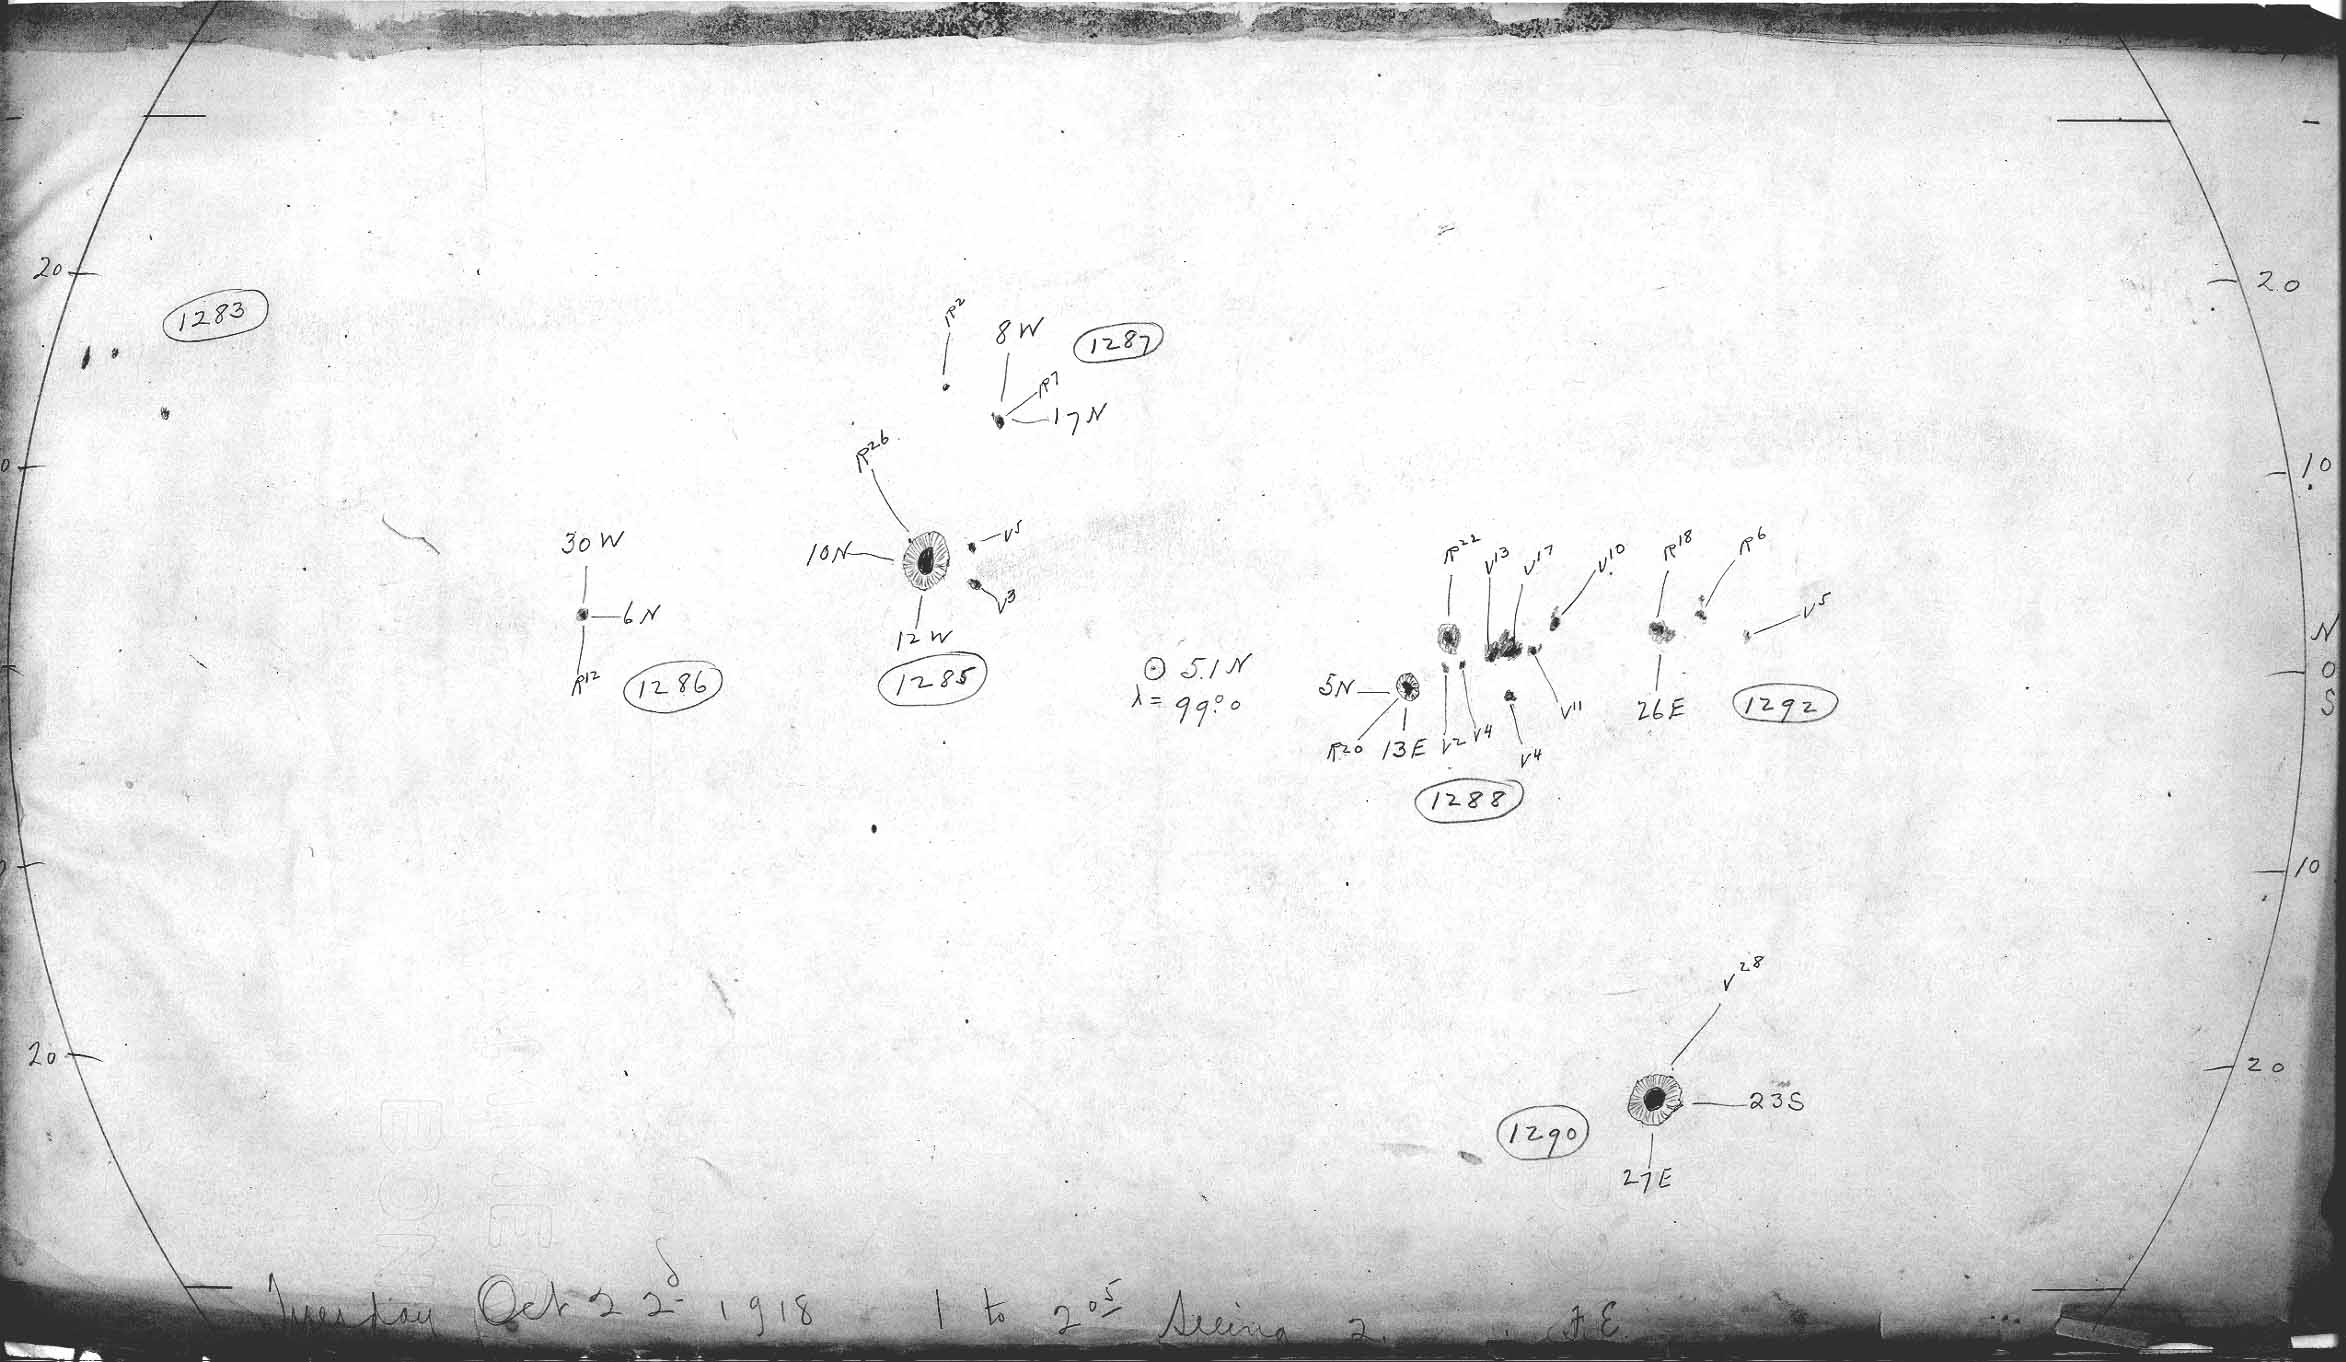 20
1283
20
R2
8W
1287
R7
17N
R26
10
30W
10N
V5
R22
V13
V17
V10
R18
R6
6N
V3
V5
12W
N
R12
1286
1285
⊙ 5.1N
λ = 99.°0
5N
0
S
R20
13E
V2
V4
V4
V11
26E
1292
1288
10
V28
20
20
23S
1290
27E
Tuesday Oct 22d 1918 1 to 2 05 Seeing 2. F.E.